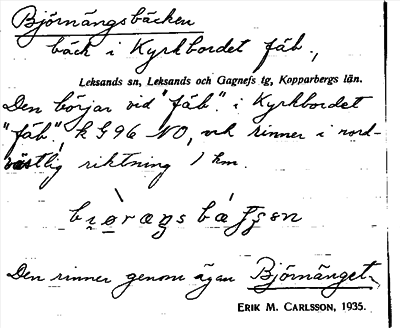 Björnängsbäcken
bäck i Kyrkbordet fäb.,
Leksands sn, Leksands och Gagnefs tg, Kopparbergs län.
Den börjar vid "fäb". i Kyrkbordet
"fäb". k G 96 NO, och rinner i nord-
västlig riktning 1 km.
Den rinner genom ägan Björnänget.
ERIK M. CARLSSON, 1935.